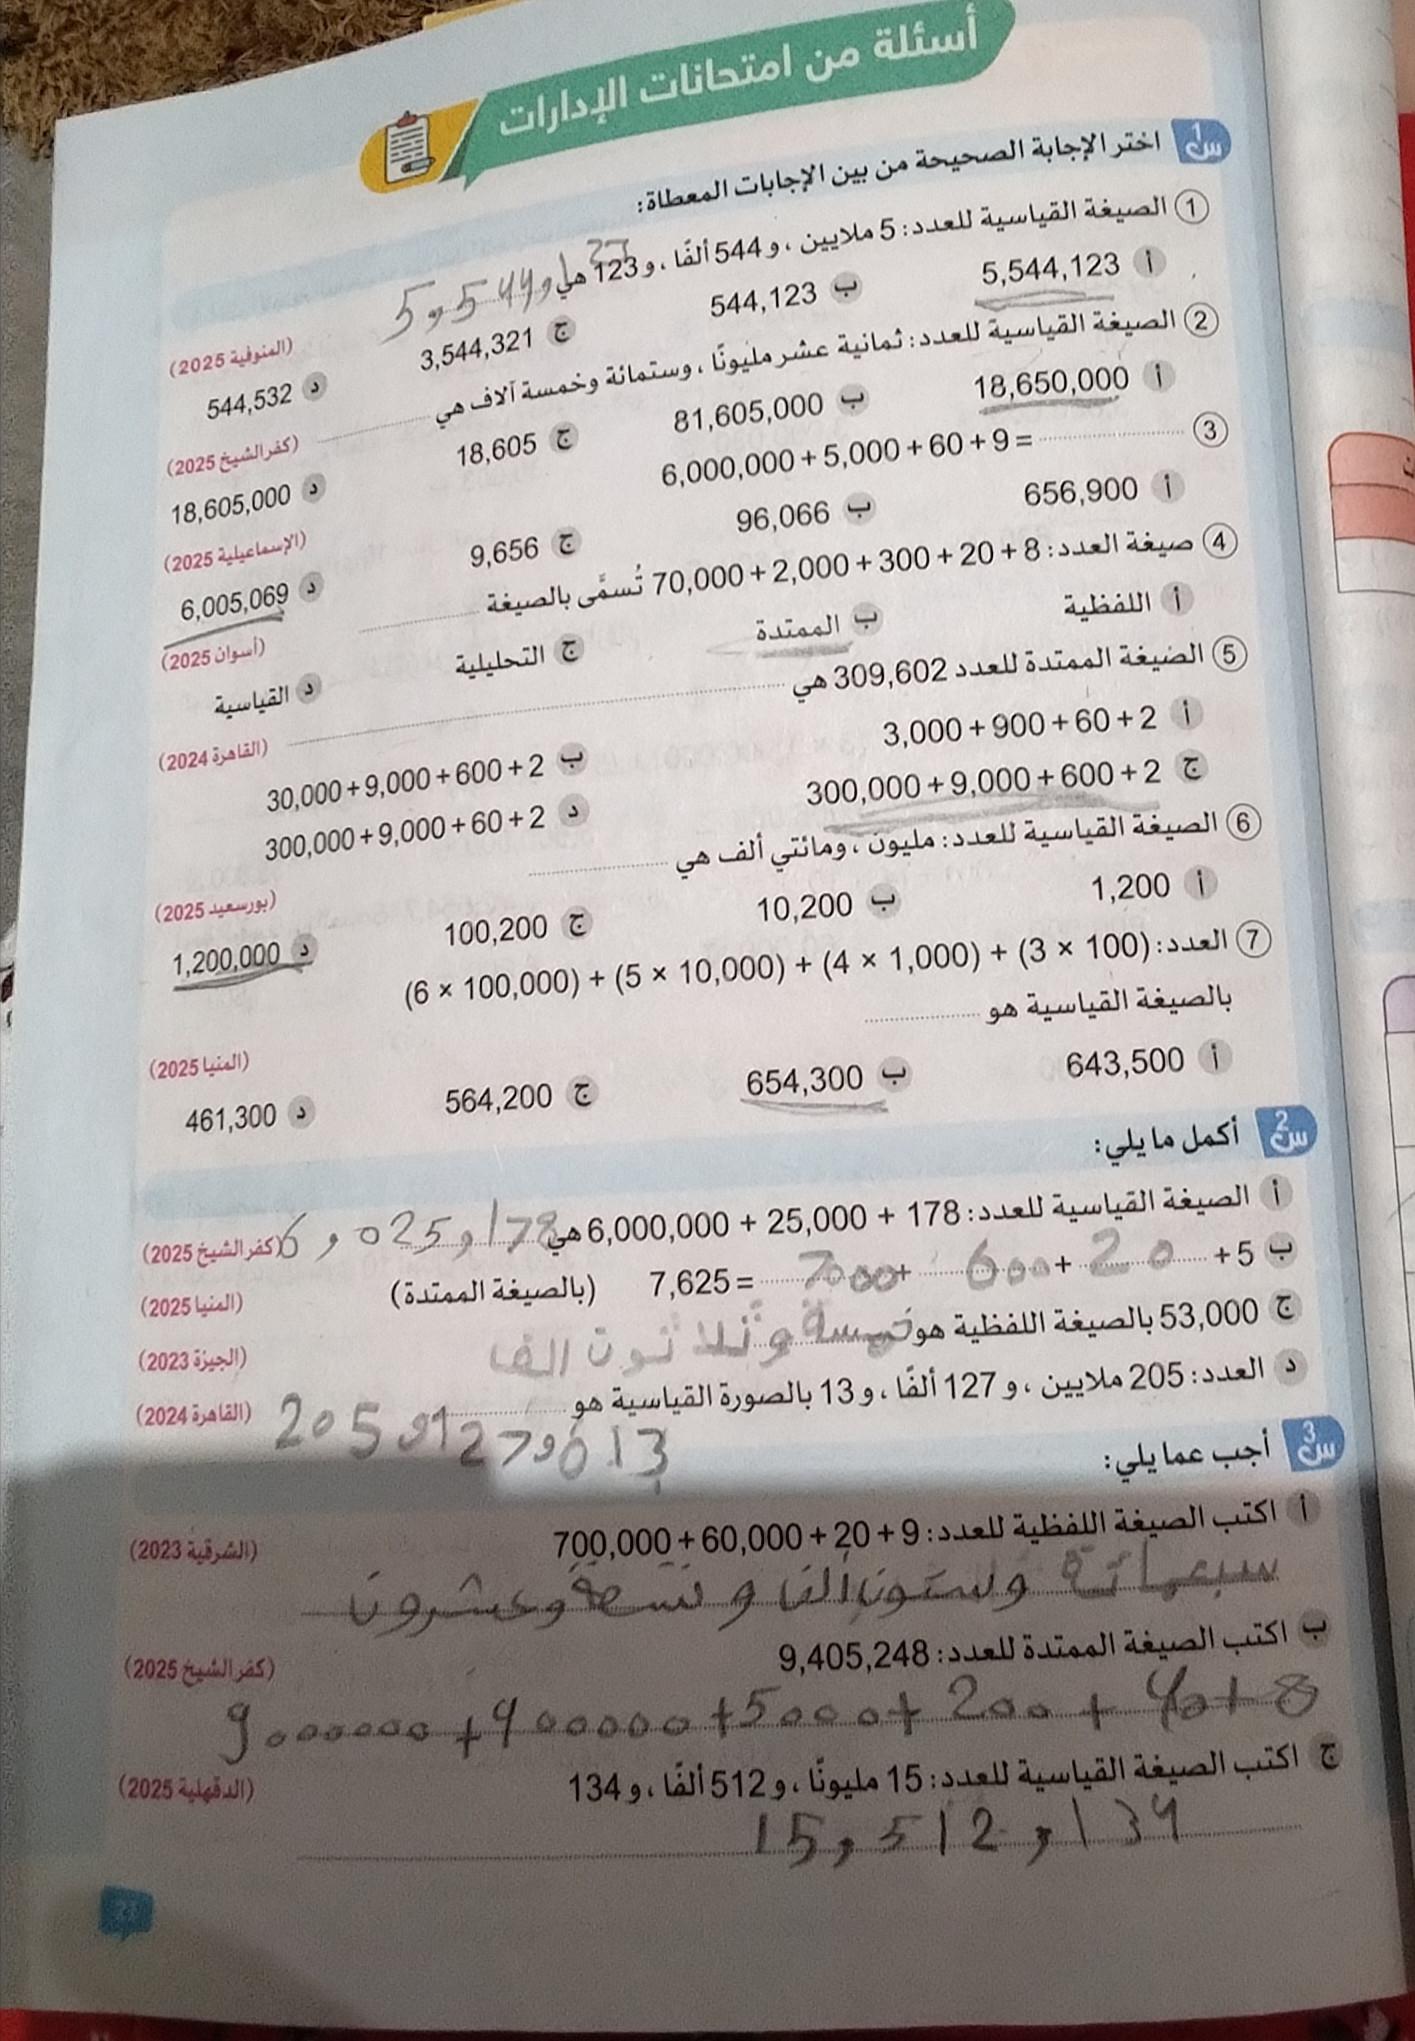 أسئلة من امتحانات الإدارات
س1 اختر الإجابة الصحيحة من بين الإجابات المعطاة:
① الصيغة القياسية للعدد: 5 ملايين ، و 544 ألفًا ، و 123 هي 5,544,123 (المنوفية 2025)
أ 5,544,123 ب 544,123 ج 3,544,321 د 544,532
② الصيغة القياسية للعدد: ثمانية عشر مليونًا ، وستمائة وخمسة آلاف هي (كفر الشيخ 2025)
أ 18,650,000 ب 81,605,000 ج 18,605 د 18,605,000
③ 6,000,000 + 5,000 + 60 + 9 = (الإسماعيلية 2025)
أ 656,900 ب 96,066 ج 9,656 د 6,005,069
④ صيغة العدد: 70,000 + 2,000 + 300 + 20 + 8 تُسمَّى بالصيغة (أسوان 2025)
أ اللفظية ب الممتدة ج التحليلية د القياسية
⑤ الصيغة الممتدة للعدد 309,602 هي (القاهرة 2024)
أ 3,000 + 900 + 60 + 2 ب 30,000 + 9,000 + 600 + 2
ج 300,000 + 9,000 + 600 + 2 د 300,000 + 9,000 + 60 + 2
⑥ الصيغة القياسية للعدد: مليون ، ومائتي ألف هي (بورسعيد 2025)
أ 1,200 ب 10,200 ج 100,200 د 1,200,000
⑦ العدد: (6 × 100,000) + (5 × 10,000) + (4 × 1,000) + (3 × 100)
بالصيغة القياسية هو (المنيا 2025)
أ 643,500 ب 654,300 ج 564,200 د 461,300
س2 أكمل ما يلي:
أ الصيغة القياسية للعدد: 6,000,000 + 25,000 + 178 هي 6,025,178 (كفر الشيخ 2025)
ب 7,625 = 7000 + 600 + 20 + 5 (بالصيغة الممتدة) (المنيا 2025)
ج 53,000 بالصيغة اللفظية هو خمسة وثلاثون الف (الجيزة 2023)
د العدد: 205 ملايين ، و 127 ألفًا ، و 13 بالصورة القياسية هو (القاهرة 2024)
205,127,013
س3 أجب عما يلي:
أ اكتب الصيغة اللفظية للعدد: 700,000 + 60,000 + 20 + 9 (الشرقية 2023)
سبعمائة وستون الفا و تسعة وعشرون
ب اكتب الصيغة الممتدة للعدد: 9,405,248 (كفر الشيخ 2025)
9000000 + 400000 + 5000 + 200 + 40 + 8
ج اكتب الصيغة القياسية للعدد: 15 مليونًا ، و 512 ألفًا ، و 134 (الدقهلية 2025)
15,512,134